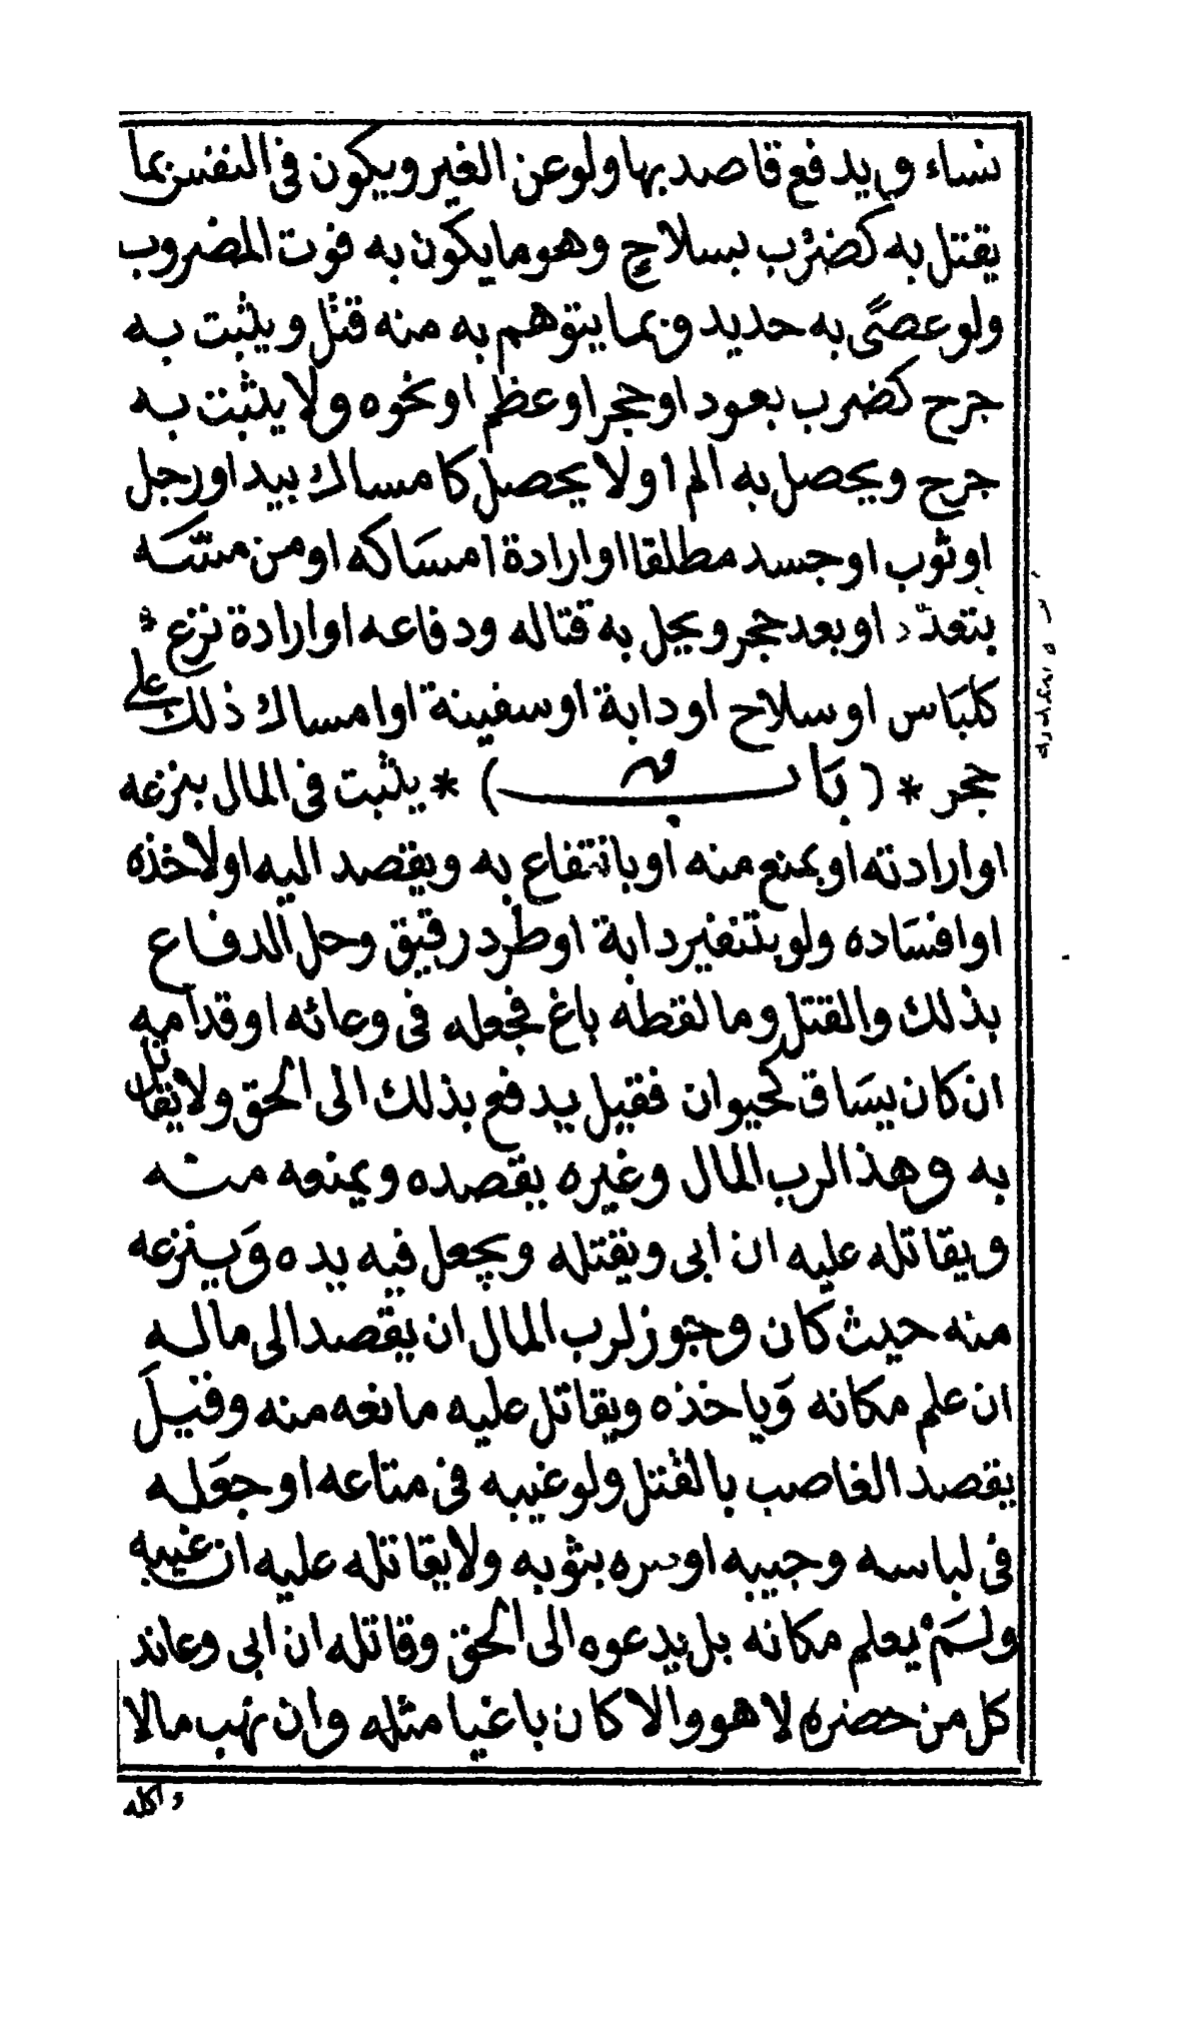 نساء ويدفع قاصد بها ولو عن الغير ويكون فى النفس بما
يقتل به كضرب بسلاح وهو ما يكون به فوت المضروب
ولو عصًى به حديد وبما يتوهم به منه قتل ويثبت به
جرح كضرب بعود او حجر او عظم او نحوه ولا يثبت به
جرح ويحصل به الم او لا يحصل كامساك بيد او رجل
او ثوب او جسد مطلقا او ارادة امساكه او من مسّه
بتعدّ او بعد حجر ويحل به قتاله ودفاعه او ارادة نزع
كلباس او سلاح او دابة او سفينة او امساك ذلك على
حجر * (باب) * يثبت فى المال بنزعه
او ارادته او بمنع منه او بانتفاع به ويقصد اليه او لاخذه
او افساده ولو بتنفير دابة او طرد رقيق وحل الدفاع
بذلك والقتل وما لقطه باغ فجعله فى وعائه او قدامه
ان كان يساق كحيوان فقيل يدفع بذلك الى الحق ولا يقاتل
به وهذا لرب المال وغيره يقصده ويمنعه منه
ويقاتله عليه ان ابى ويقتله ويجعل فيه يده وينزعه
منه حيث كان وجوز لرب المال ان يقصد الى ماله
ان علم مكانه وياخذه ويقاتل عليه مانعه منه وقيل
يقصد الغاصب بالقتل ولو غيبه فى متاعه او جعله
فى لباسه وجيبه او سره بثوبه ولا يقاتله عليه ان غيبه
ولم يعلم مكانه بل يدعوه الى الحق وقاتله ان ابى وعاند
كل من حضره لا هو والا كان باغيا مثله وان نهب مالا
واكله